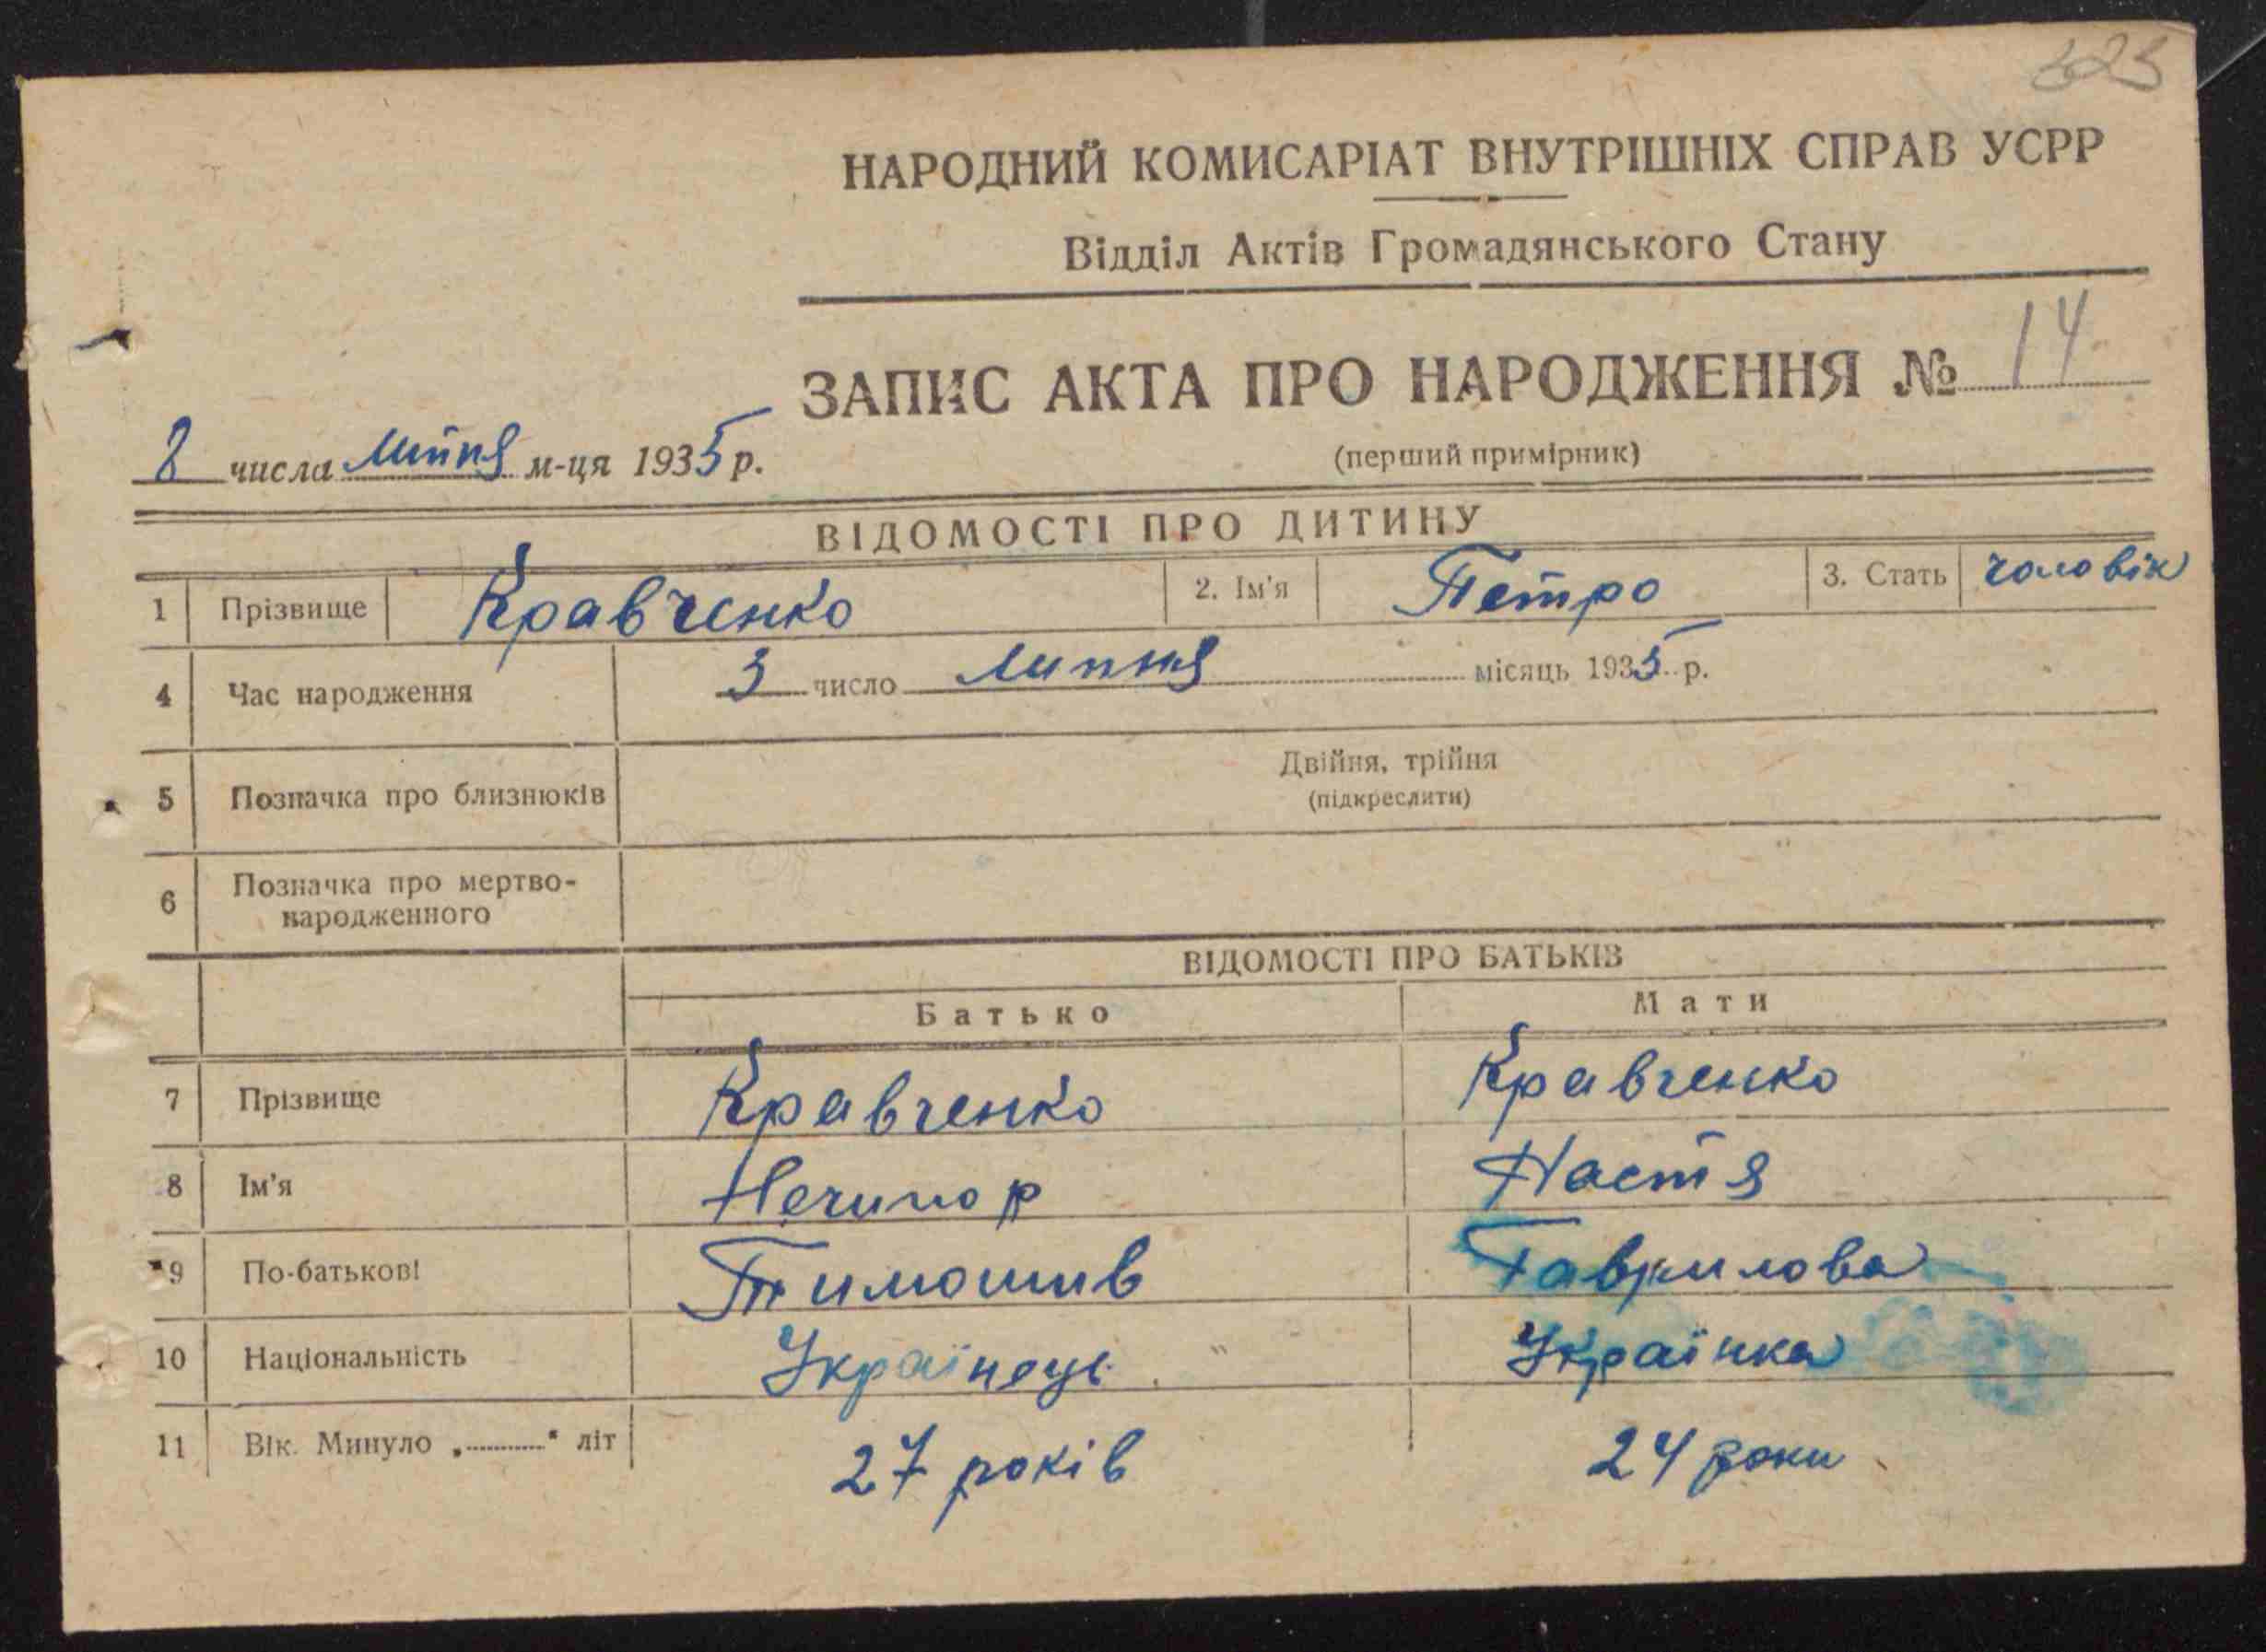 325
НАРОДНИЙ КОМИСАРІАТ ВНУТРІШНІХ СПРАВ УСРР
Відділ Актів Громадянського Стану
ЗАПИС АКТА ПРО НАРОДЖЕННЯ № 14
(перший примірник)
8 числа липня м-ця 1935 р.
ВІДОМОСТІ ПРО ДИТИНУ
1 Прізвище Кравченко 2. Ім'я Петро 3. Стать чоловік
4 Час народження 3 число липня місяць 1935 р.
5 Позначка про близнюків Двійня, трійня
(підкреслити)
6 Позначка про мертво-
народженного
ВІДОМОСТІ ПРО БАТЬКІВ
Батько Мати
7 Прізвище Кравченко Кравченко
8 Ім'я Нечипор Настя
9 По-батькові Тимошив Гаврилова
10 Національність Українець Українка
11 Вік. Минуло „............“ літ 27 років 24 роки